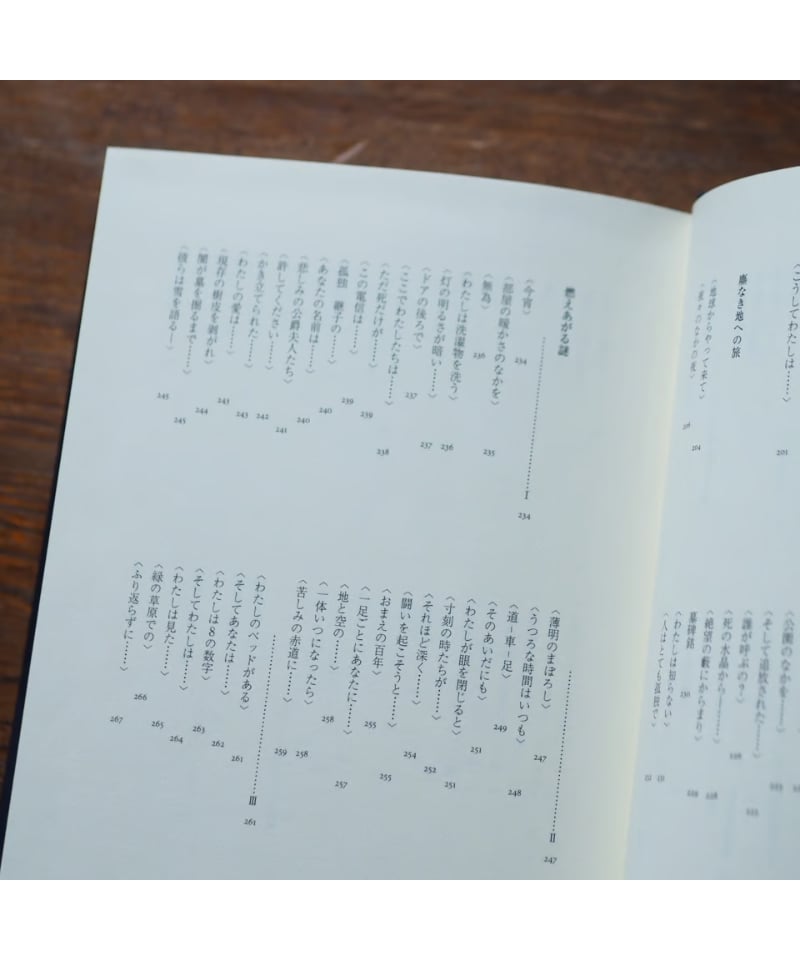 〈こうしてわたしは……〉 203
塵なき地への旅
〈地球からやって来て〉 204
〈夜々のなかの夜〉
〈公園のなかを――〉
〈そして追放された……〉
〈誰が呼ぶの?〉
〈死の水晶から――〉
〈絶望の藪にからまり〉
墓碑銘 230
〈わたしは知らない〉
〈人はとても孤独で〉
燃えあがる謎
Ⅰ 234
〈今宵〉 234
〈部屋の暖かさのなかを〉 235
〈無為〉 236
〈わたしは洗濯物を洗う〉 236
〈灯の明るさが暗い……〉 237
〈ドアの後ろで〉 237
〈ここでわたしたちは……〉 238
〈ただ死だけが……〉 239
〈この電信は……〉 239
〈孤独 継子の……〉 240
〈あなたの名前は……〉 240
〈悲しみの公爵夫人たち〉 241
〈許してください……〉 242
〈かき立てられた……〉 243
〈わたしの愛は……〉 243
〈現存の樹皮を剥がれ〉 244
〈闇が墓を掘るまで……〉 245
〈彼らは雪を語る―〉 245
Ⅱ 247
〈薄明のまぼろし〉 247
〈うつろな時間はいつも〉 248
〈道-車-足〉 249
〈そのあいだにも〉 251
〈わたしが眼を閉じると〉 251
〈寸刻の時たちが……〉 252
〈それほど深く……〉 254
〈闘いを起こそうと……〉 255
〈おまえの百年〉 255
〈一足ごとにあなたに……〉 257
〈地と空の……〉 258
〈一体いつになったら〉 258
〈苦しみの赤道に……〉 259
Ⅲ 261
〈わたしのベッドがある〉 261
〈そしてあなたは……〉 262
〈わたしは8の数字〉 263
〈そしてわたしは……〉 264
〈わたしは見た……〉 265
〈緑の草原での〉 266
〈ふり返らずに……〉 267